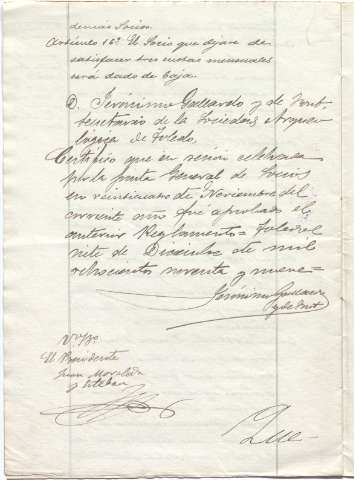 demás Socios.
Artículo 16º El Socio que dejare de
satisfacer tres cuotas mensuales
será dado de baja.
D. Jerónimo Gallardo y de Font
Secretario de la Sociedad Arqueo-
lógica de Toledo.
Certifico que en sesión celebrada
por la Junta General de Socios
en veinticuatro de Noviembre del
corriente año fue aprobado el
anterior Reglamento = Toledo
siete de Diciembre de mil
ochocientos noventa y nueve =
Jerónimo Gallardo
y de Font
Vº Bº
El Presidente
Juan Moraleda
y Esteban